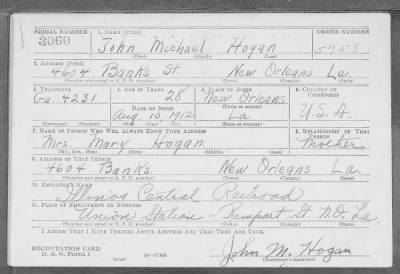 SERIAL NUMBER 1. NAME (Print) ORDER NUMBER
3060 John Michael Hogan 5758
(First) (Middle) (Last)
2. ADDRESS (Print)
4604 Banks St New Orleans La.
(Number and street or R. F. D. number) (Town) (County) (State)
3. TELEPHONE 4. AGE IN YEARS 5. PLACE OF BIRTH 6. COUNTRY OF CITIZENSHIP
Ga. 4231 28 New Orleans
DATE OF BIRTH (Town or county)
Aug 10, 1912 La U.S.A.
(Mo.) (Day) (Yr.) (State or country)
7. NAME OF PERSON WHO WILL ALWAYS KNOW YOUR ADDRESS 8. RELATIONSHIP OF THAT PERSON
Mrs. Mary Hogan Mother
(Mr., Mrs., Miss) (First) (Middle) (Last)
9. ADDRESS OF THAT PERSON
4604 Banks. New Orleans La.
(Number and street or R. F. D. number) (Town) (County) (State)
10. EMPLOYER'S NAME
Illinios Central Railroad
11. PLACE OF EMPLOYMENT OR BUSINESS
Union Station - Rampart St. N.O. La.
(Number and street or R. F. D. number) (Town) (County) (State)
I AFFIRM THAT I HAVE VERIFIED ABOVE ANSWERS AND THAT THEY ARE TRUE.
REGISTRATION CARD
D. S. S. Form 1 John M. Hogan
(Registrant's signature)